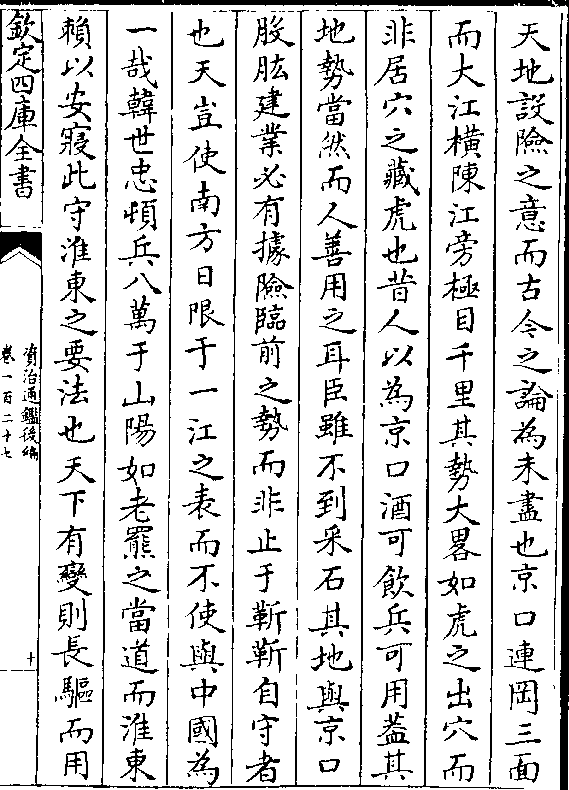 天地設險之意而古今之論為未盡也京口連岡三面
而大江橫陳江旁極目千里其勢大畧如虎之出穴而
非居穴之藏虎也昔人以為京口酒可飲兵可用葢其
地勢當然而人善用之耳臣雖不到采石其地與京口
股肱建業必有據險臨前之勢而非止于靳靳自守者
也天豈使南方日限于一江之表而不使與中國為
一哉韓世忠頓兵八萬于山陽如老羆之當道而淮東
賴以安寢此守淮東之要法也天下有變則長驅而用
欽定四庫全書
資治通鑑後編
卷一百二十七
十